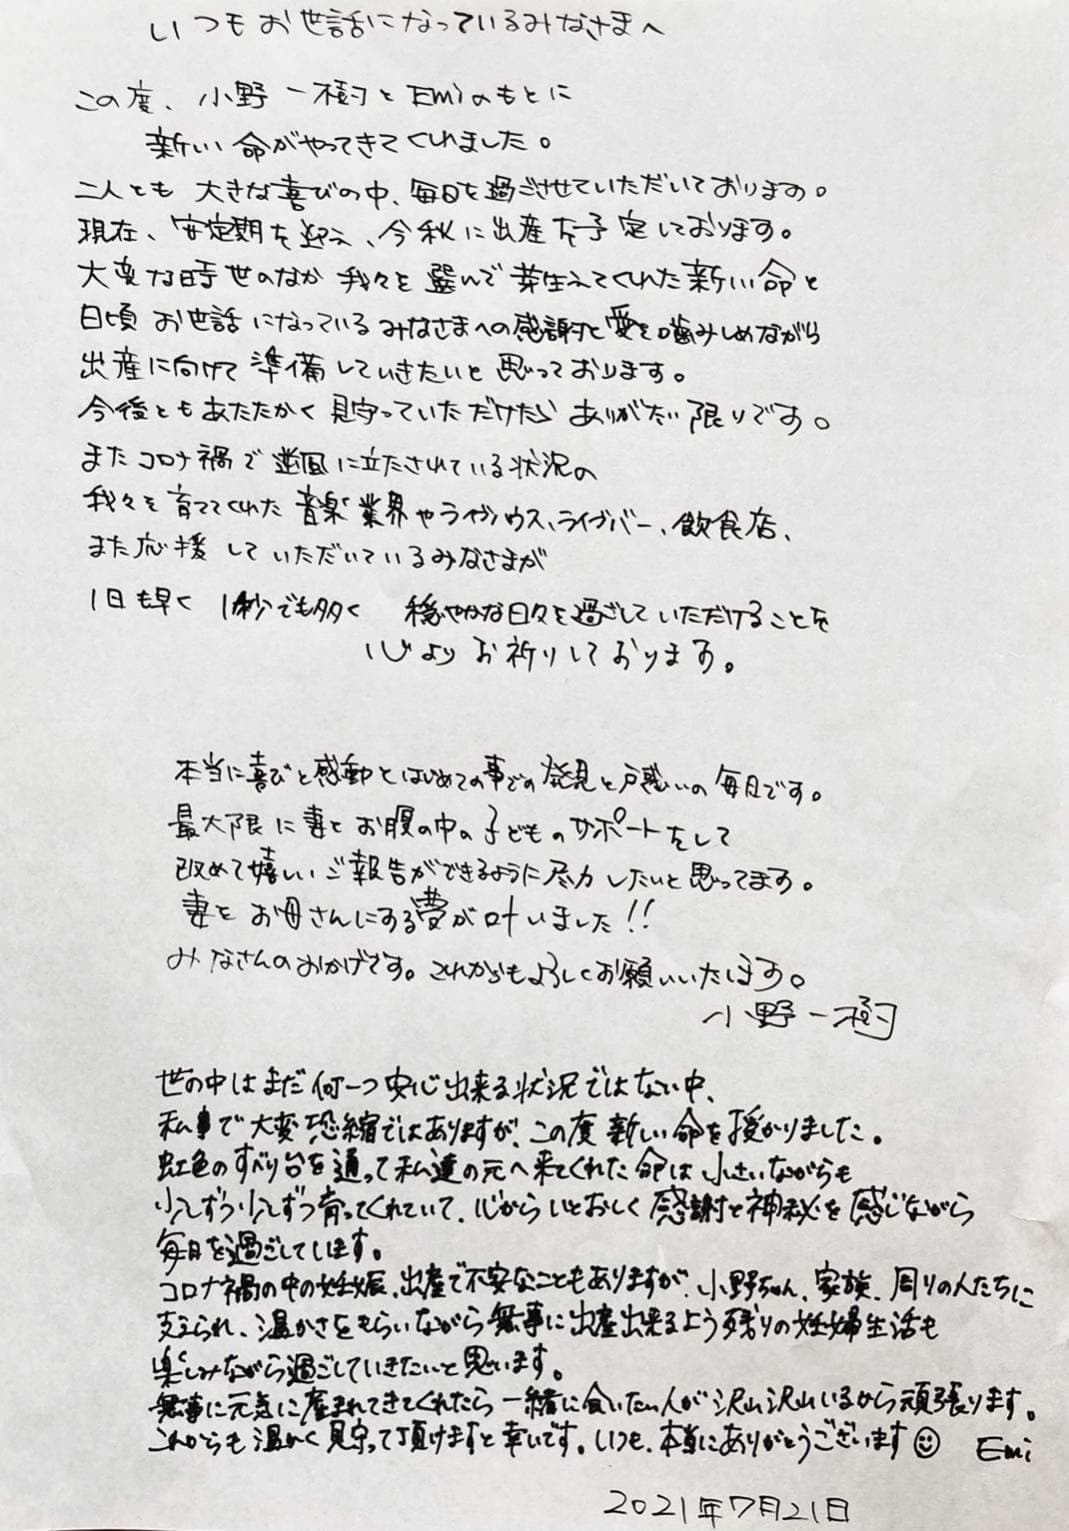 いつもお世話になっているみなさまへ
この度、小野一樹とEmiのもとに
新しい命がやってきてくれました。
二人とも大きな喜びの中、毎日を過ごさせていただいております。
現在、安定期を迎え、今秋に出産を予定しております。
大変な時世のなか我々を選んで芽生えてくれた新しい命と
日頃お世話になっているみなさまへの感謝と愛を噛みしめながら
出産に向けて準備していきたいと思っております。
今後ともあたたかく見守っていただけたらありがたい限りです。
またコロナ禍で逆風に立たされている状況の
我々を育ててくれた音楽業界やライヴハウス、ライブバー、飲食店、
また応援していただいているみなさまが
1日も早く 1秒でも多く 穏やかな日々を過ごしていただけることを
心よりお祈りしております。
本当に喜びと感動とはじめての事での発見と戸惑いの毎日です。
最大限に妻とお腹の中の子どものサポートをして
改めて嬉しいご報告ができるように尽力したいと思ってます。
妻をお母さんにする夢が叶いました!!
みなさんのおかげです。これからもよろしくお願いいたします。
小野一樹
世の中はまだ何一つ安心出来る状況ではない中、
私事で大変恐縮ではありますが、この度新しい命を授かりました。
虹色のすべり台を通って私達の元へ来てくれた命は小さいながらも
少しずつ少しずつ育ってくれていて、心からいとおしく感謝と神秘を感じながら
毎日を過ごしています。
コロナ禍の中の妊娠、出産で不安なこともありますが、小野ちゃん、家族、周りの人たちに
支えられ、温かさをもらいながら無事に出産出来るよう残りの妊婦生活も
楽しみながら過ごしていきたいと思います。
無事に元気に産まれてきてくれたら一緒に会いたい人が沢山沢山いるから頑張ります。
これからも温かく見守って頂けますと幸いです。いつも、本当にありがとうございます☺ Emi
2021年7月21日